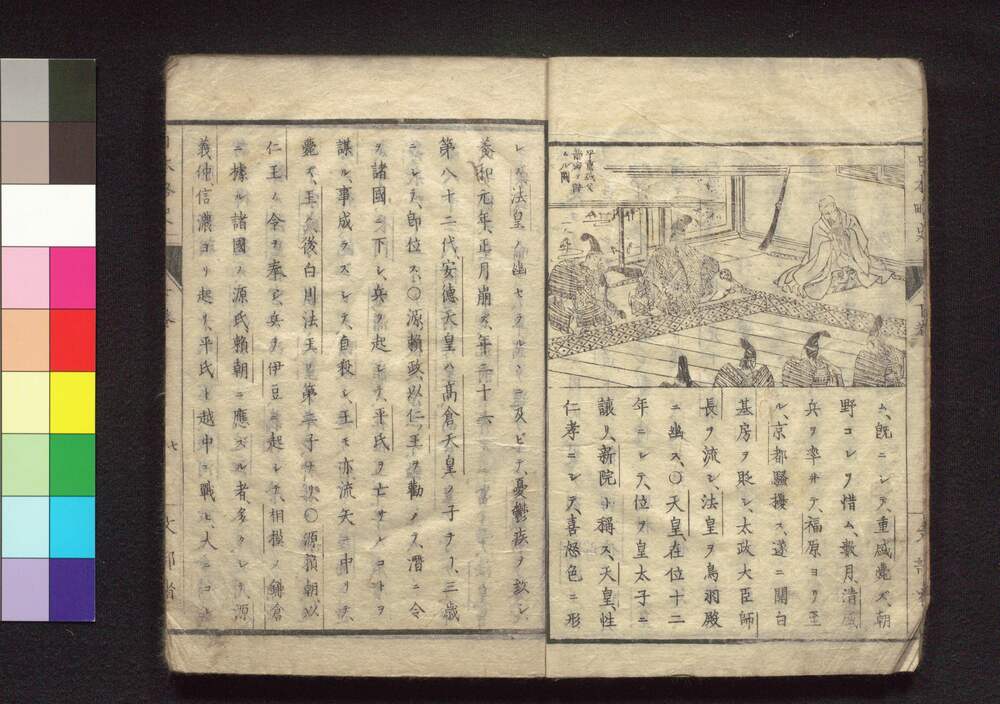 平重盛父
諫ムル圖
ム、既ニシテ重盛薨ズ、朝
野コレヲ惜ム、數月、清盛
兵ヲ率ヰテ、福原ヨリ至
ル、京都騷擾ス、遂ニ關白
基房ヲ貶シ、太政大臣師
長ヲ流シ、法皇ヲ鳥羽殿
ニ幽ス、〇天皇在位十二
年ニシテ、位ヲ皇太子ニ
讓リ、新院ト稱ス、天皇性
仁孝ニシテ、喜怒色ニ形
レズ、法皇ノ幽セラルヽニ及ビテ、憂鬱疾ヲ致シ、
養和元年、正月崩ズ、年二十一、
第八十二代安德天皇ハ高倉天皇ノ子ナリ、三歳
ニシテ、即位ス、〇源賴政、以仁王ヲ勸メテ、潛ニ令
ヲ諸國ニ下シ、兵ヲ起シテ、平氏ヲ亡サムコトヲ
謀ル、事成ラズシテ、自殺シ、王モ亦流矢ニ中リテ、
薨ズ、王ハ後白河法王ノ第二子ナリ、〇源賴朝、以
仁王ノ令ヲ奉ジ、兵ヲ伊豆ニ起シテ、相模ノ鎌倉
ニ據ル、諸國ノ源氏、賴朝ニ應ズル者、多クシテ、源
義仲、信濃ヨリ起リ、平氏ト越中ニ戰ヒ、大ニコレ
七
文部省